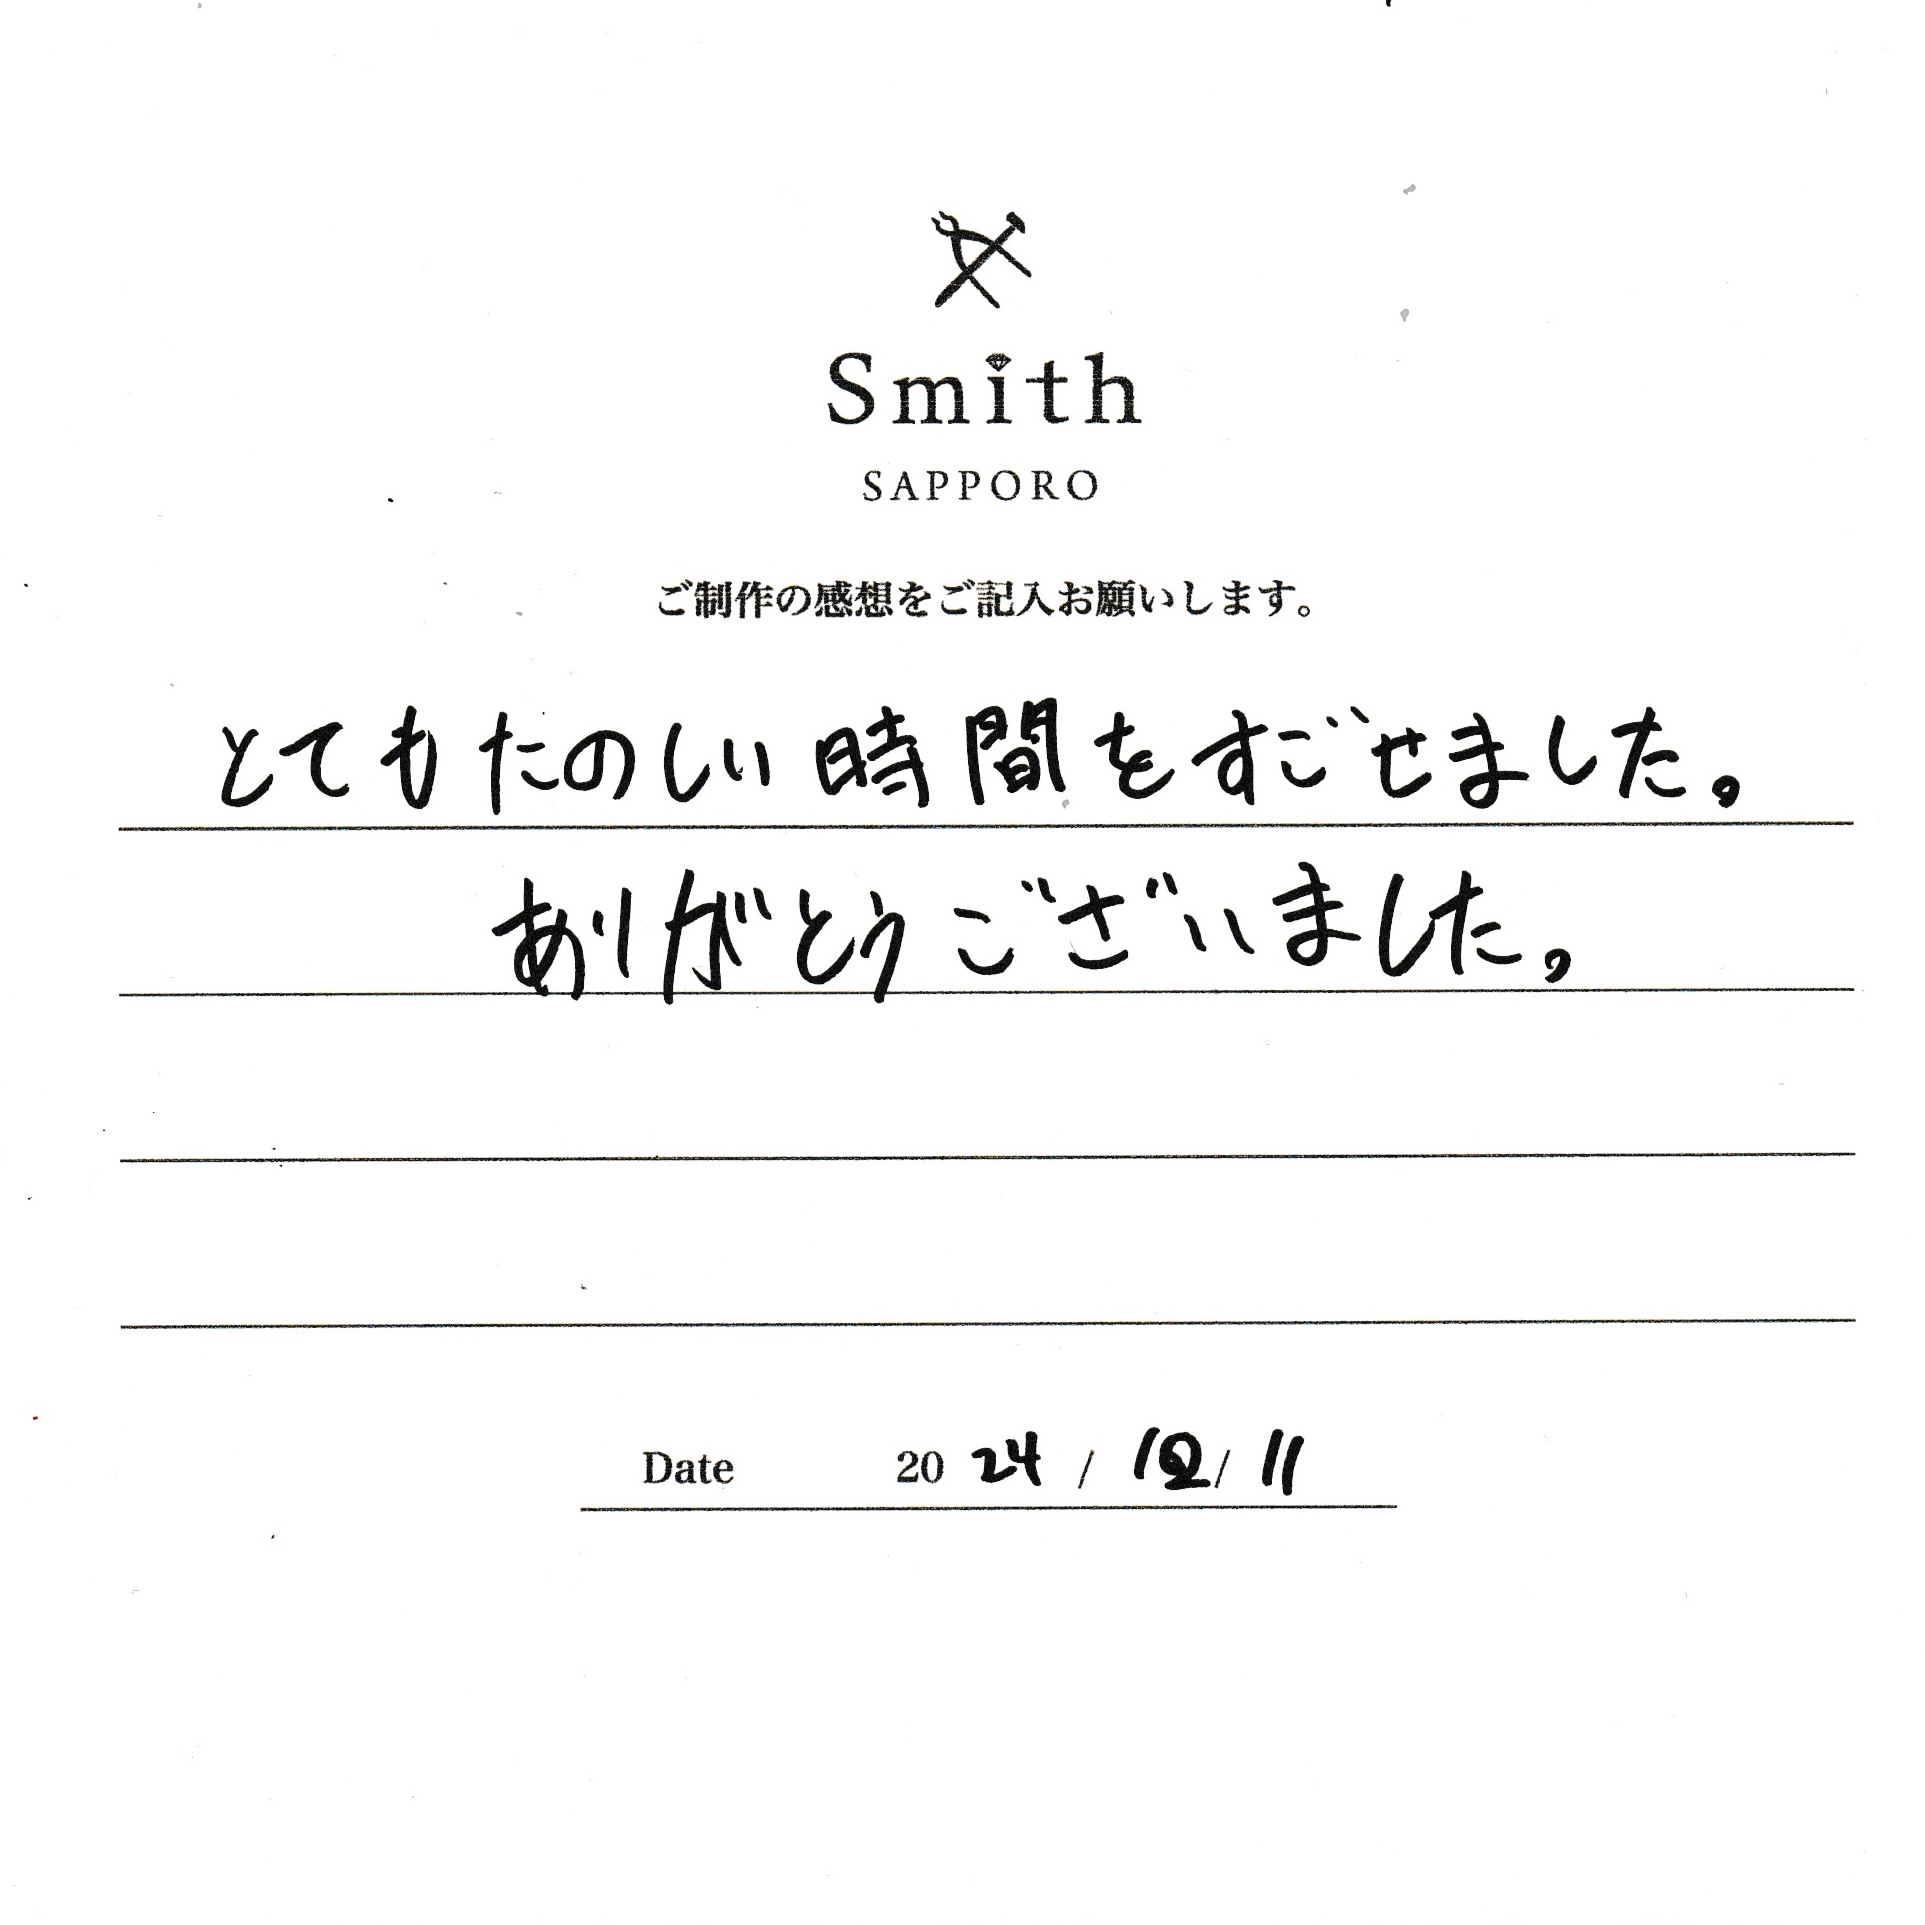 Smith
SAPPORO
ご制作の感想をご記入お願いします。
とてもたのしい時間をすごせました。
ありがとうございました。
Date 2024 / 12 / 11